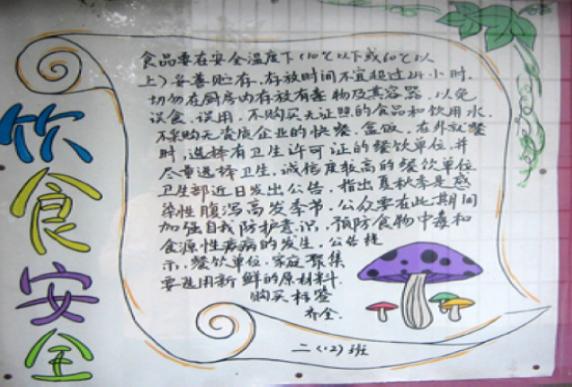 饮食安全
食品要在安全温度下(10℃以下或60℃以
上)妥善贮存,存放时间不宜超过24小时.
切勿在厨房内存放有毒物及其容器,以免
误食、误用.不购买无证照的食品和饮用水.
不采购无资质企业的快餐、盒饭。在外就餐
时,选择有卫生许可证的餐饮单位,并
尽量选择卫生,诚信度较高的餐饮单位
卫生部近日发出公告,指出夏秋季是感
染性腹泻高发季节,公众要在此期间
加强自我防护意识,预防食物中毒和
食源性疾病的发生,公告提
示,餐饮单位、家庭聚集
要选用新鲜的原材料.
购买标签
齐全.
二(12)班